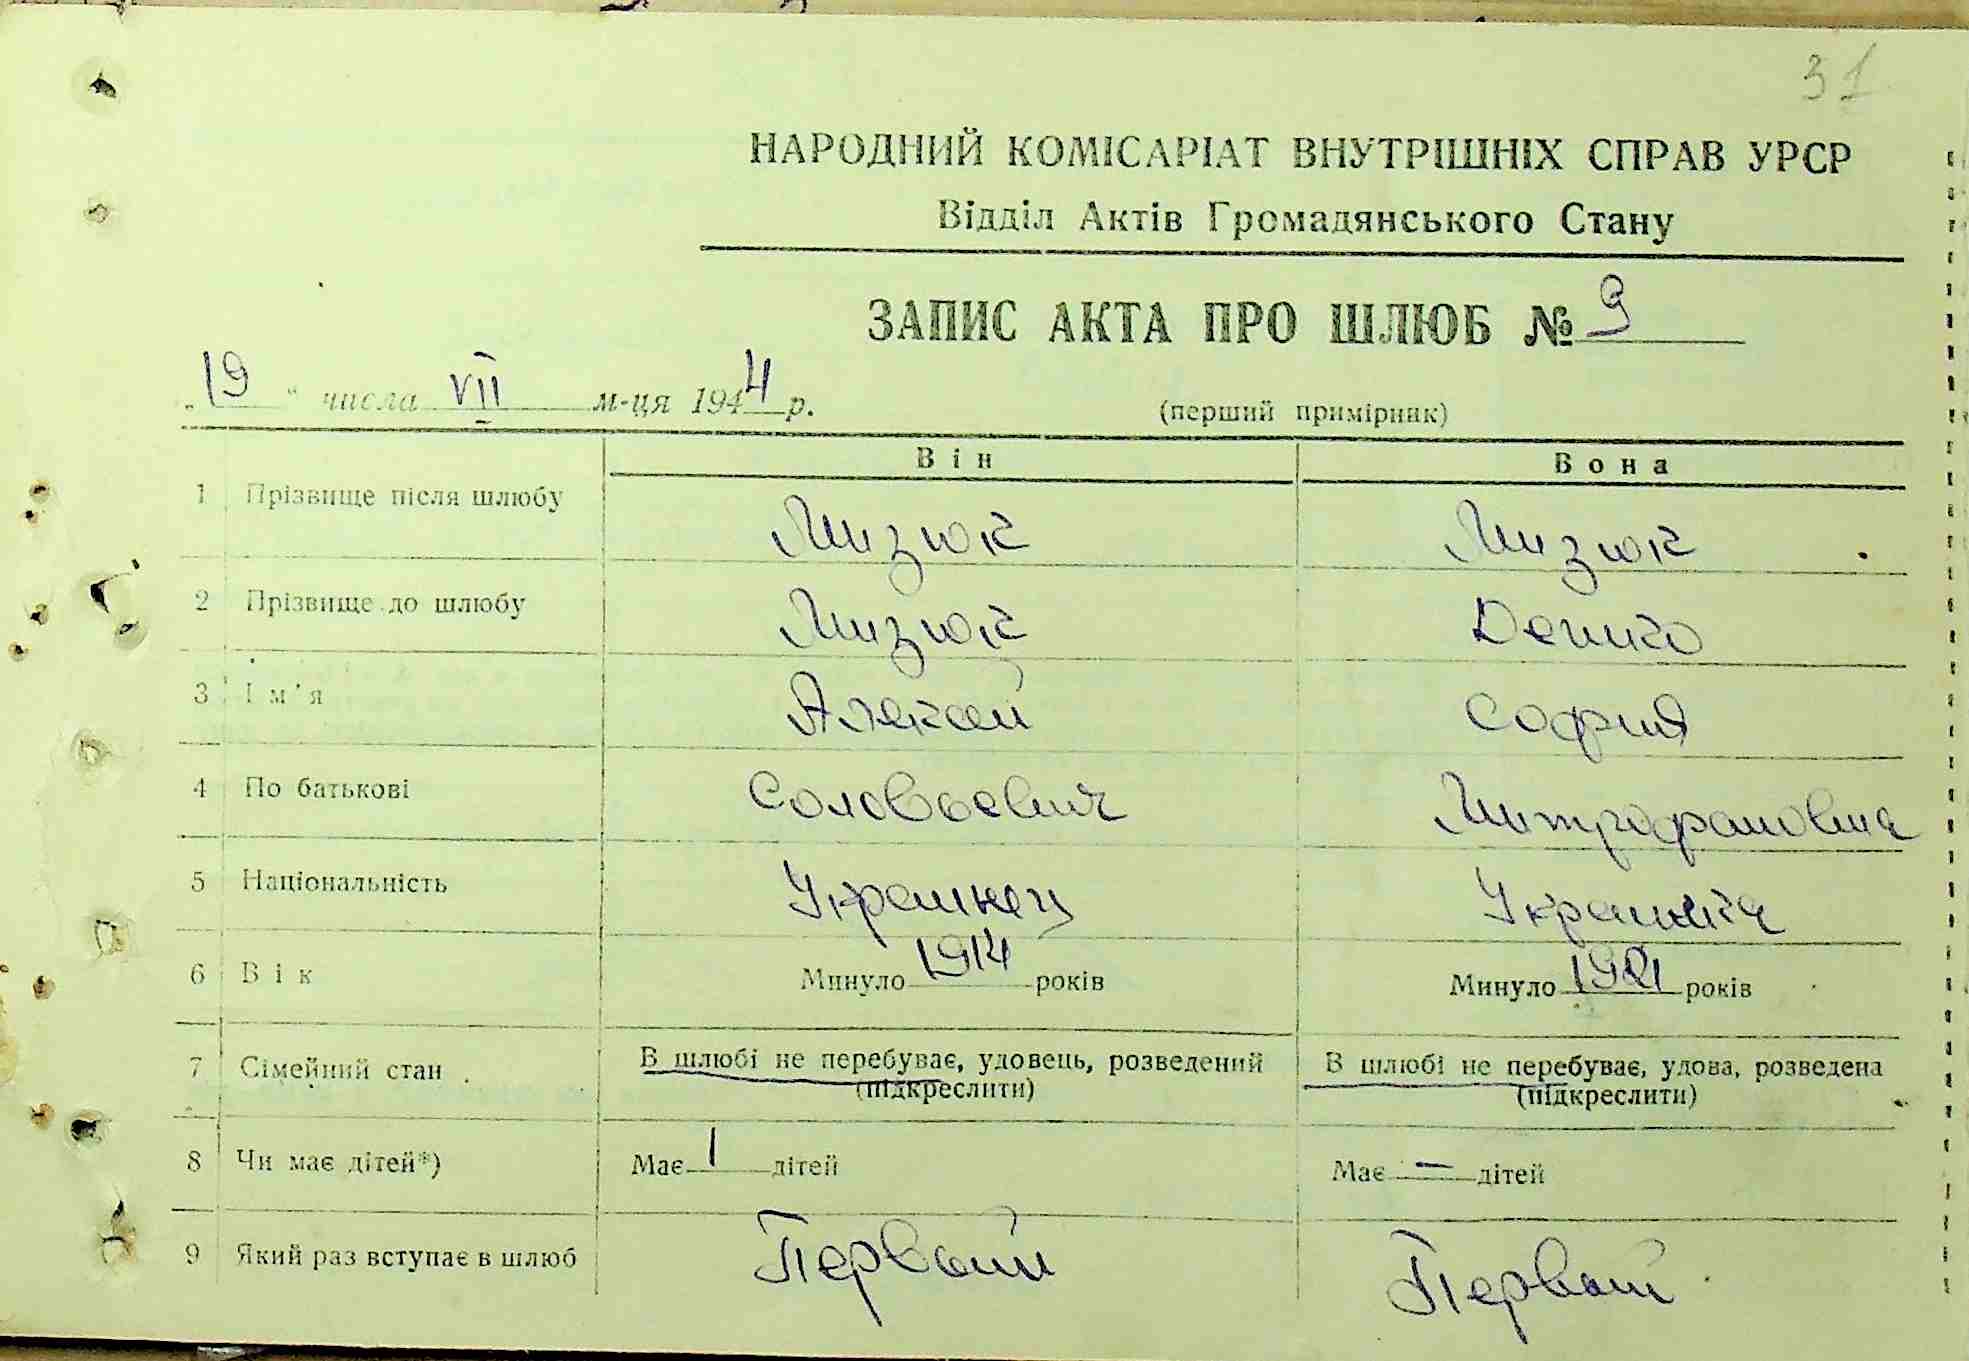 31
НАРОДНИЙ КОМІСАРІАТ ВНУТРІШНІХ СПРАВ УРСР
Відділ Актів Громадянського Стану
ЗАПИС АКТА ПРО ШЛЮБ № 9
„19“ числа VII м-ця 1944 р. (перший примірник)
Він Вона
1 Прізвище після шлюбу Мизюк Мизюк
2 Прізвище до шлюбу Мизюк
3 Ім'я Алексей София
4 По батькові Соловьевич Митрофановна
5 Національність Украинец Украинка
6 Вік Минуло 1914 років Минуло 1921 років
7 Сімейний стан В шлюбі не перебуває, удовець, розведений В шлюбі не перебуває, удова, розведена
(підкреслити) (підкреслити)
8 Чи має дітей*) Має 1 дітей Має — дітей
9 Який раз вступає в шлюб Первый Первый